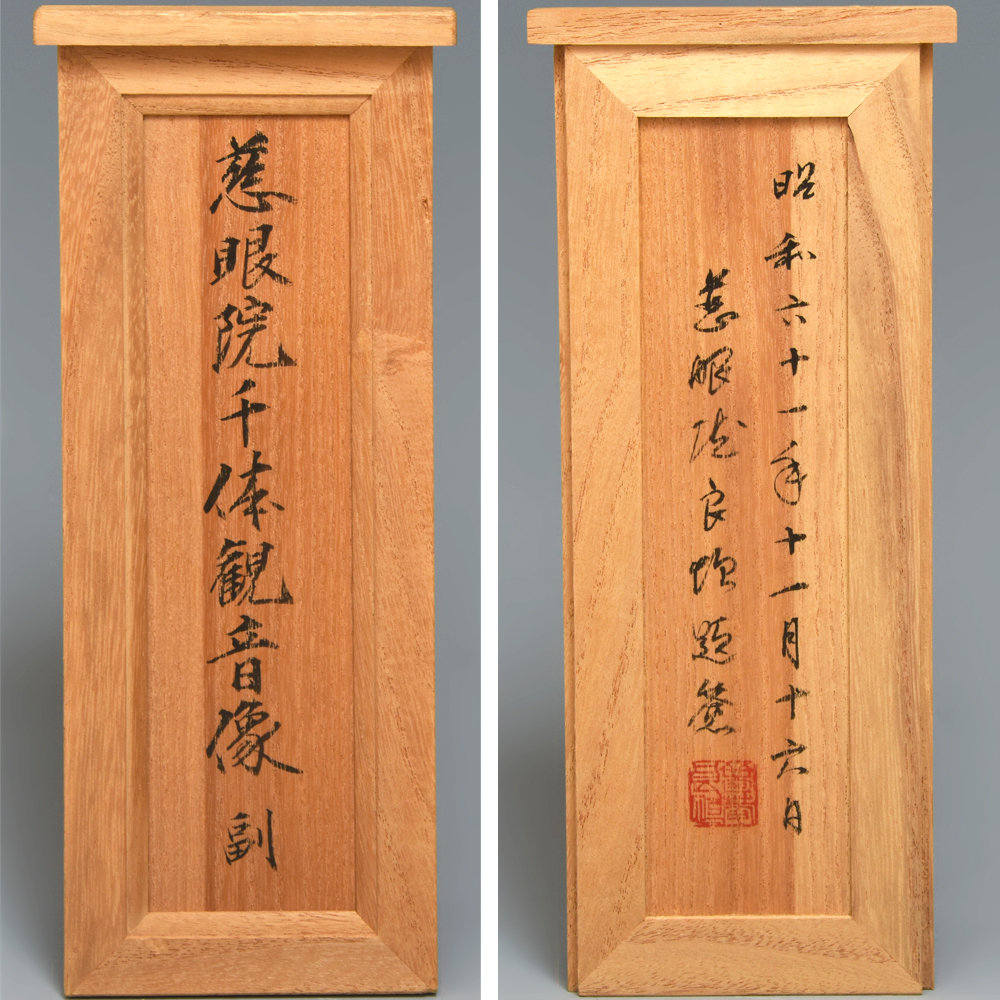 慈眼院千体観音像 副
昭和六十一年十一月十六日
慈眼院良恒題簽